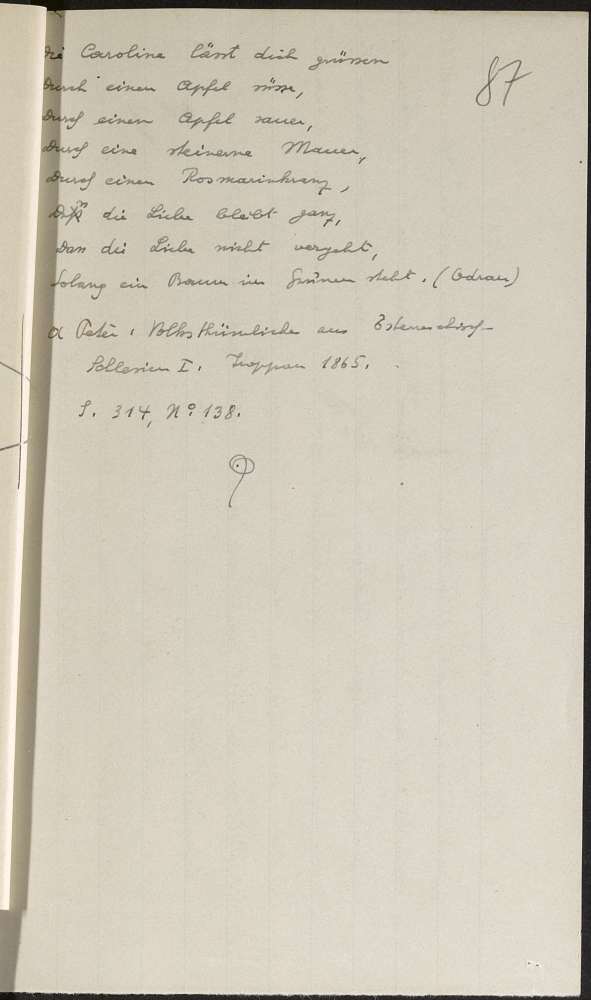 Die Caroline lässt dich grüssen
Durch einen Apfel süsse,
Durch einen Apfel sauer,
Durch eine steinerne Mauer,
Durch einen Rosmarinkranz,
Daß die Liebe bleibt ganz,
Dan die Liebe nicht vergeht,
Solang ein Baum im Grünen steht. (Odrau)
87
α Peter: Volksthümliches aus Österreichisch-
Schlesien I. Troppau 1865.
S. 314, No 138.